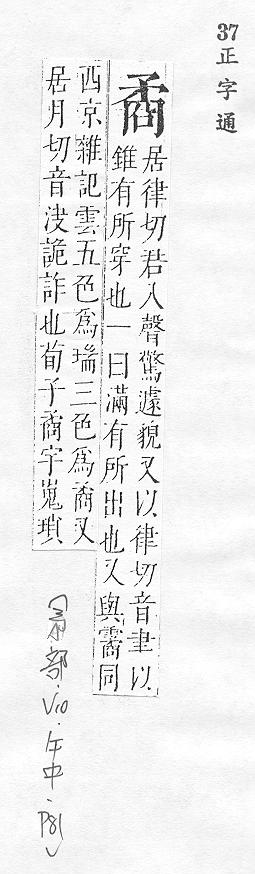 37
正字通
矞
居律切君入聲驚遽貌又以律切音聿以
錐有所穿也一曰滿有所出也又與霱同
西京雜記雲五色爲瑞三色爲矞又
居月切音決詭詐也荀子矞宇嵬瑣
部.V10.午中.P81